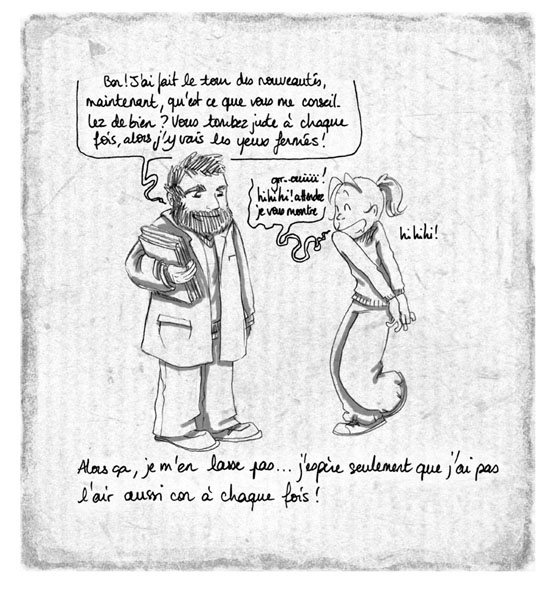 Bon! J'ai fait le tour des nouveautés,
maintenant, qu'est ce que vous me conseil-
lez de bien ? Vous tombez juste à chaque
fois, alors j'y vais les yeux fermés!
grr..ouiiii!
hihihi! attendez
je vous montre
hihihi!
Alors ça, je m'en lasse pas... j'espère seulement que j'ai pas
l'air aussi con à chaque fois!